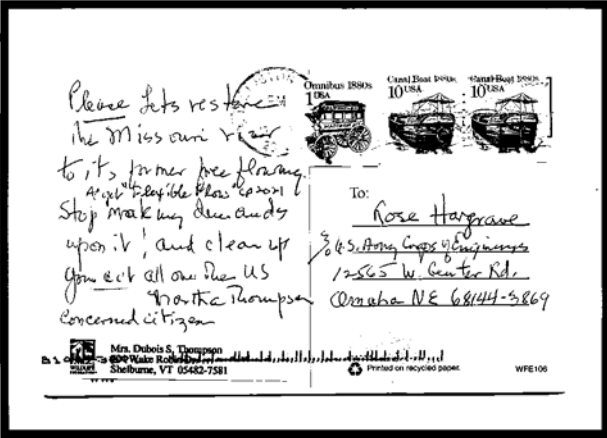 Please Lets restore
the Missouri river
to its former free flowing.
Adopt "Flexible Flows" GP2021
Stop making demands
upon it! and clean up
your act all over the US
Martha Thompson
Concerned citizen
Omnibus 1880s
1 USA
Canal Boat 1880s
10 USA
Canal Boat 1880s
10 USA
To:
Rose Hargrave
% U.S. Army Corps of Engineers
12565 W. Center Rd.
Omaha NE 68144-3869
Mrs. Dubois S. Thompson
Wake Robin
Shelburne, VT 05482-7581
Printed on recycled paper.
WFE106